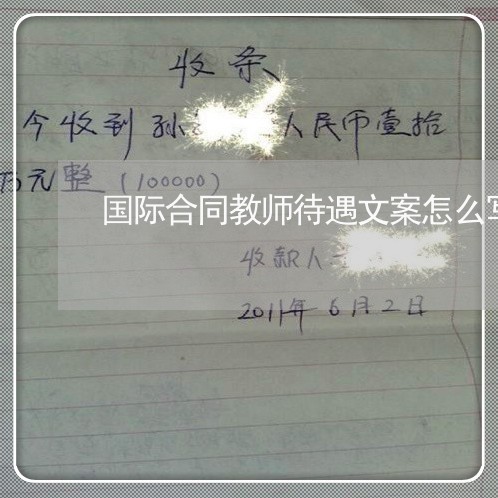 收条
今收到孙 人民币壹拾
万元整（100000）
国际合同教师待遇文案怎么写
收款人
2011年6月2日